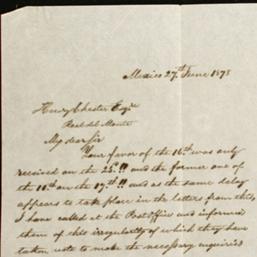 Mexico 27th June 1873
Henry Chester Esqre
Real del Monte
My dear Sir
Your favor of the 16th was only
received on the 25th!! and the former one of
the 11th on the 17th!! and as the same delay
appears to take place in the letters from this,
I have called at the Post Office and informed
them of this irregularity of which they have
taken note to make the necessary inquiries